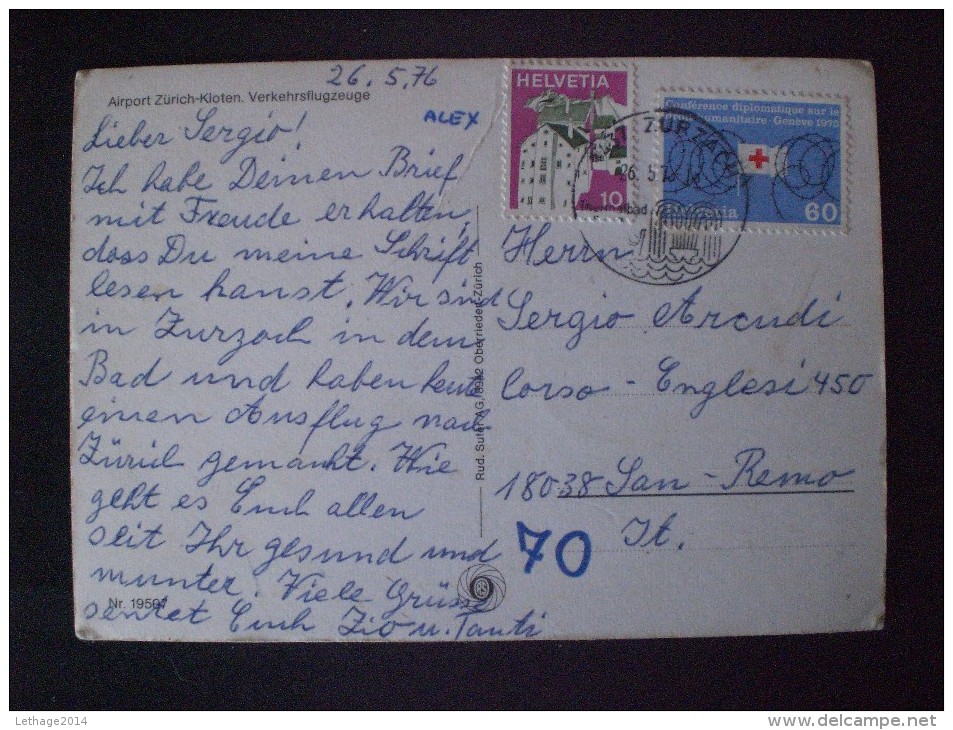 26.5.76
Airport Zürich-Kloten. Verkehrsflugzeuge
ALEX
Lieber Sergio!
Ich habe Deinen Brief
mit Freude erhalten,
dass Du meine Schrift
lesen kanst. Wir sind
in Zurzach in dem
Bad und haben heute
einen Ausflug nach
Zürich gemacht. Wie
geht es Euch allen
seit Ihr gesund und
munter. Viele Grüsse
sentet Euch Zio u. Tanti
Nr. 19507
Rud. Suter AG, 8942 Oberrieden-Zürich
HELVETIA
10
Conférence diplomatique sur le
humanitaire · Genève 1975
60
ZURZACH
26. 5.
Thermalbad
Herrn
Sergio Arcudi
Corso - Englesi 450
18038 San-Remo
It.
70
Lethage2014
www.delcampe.net